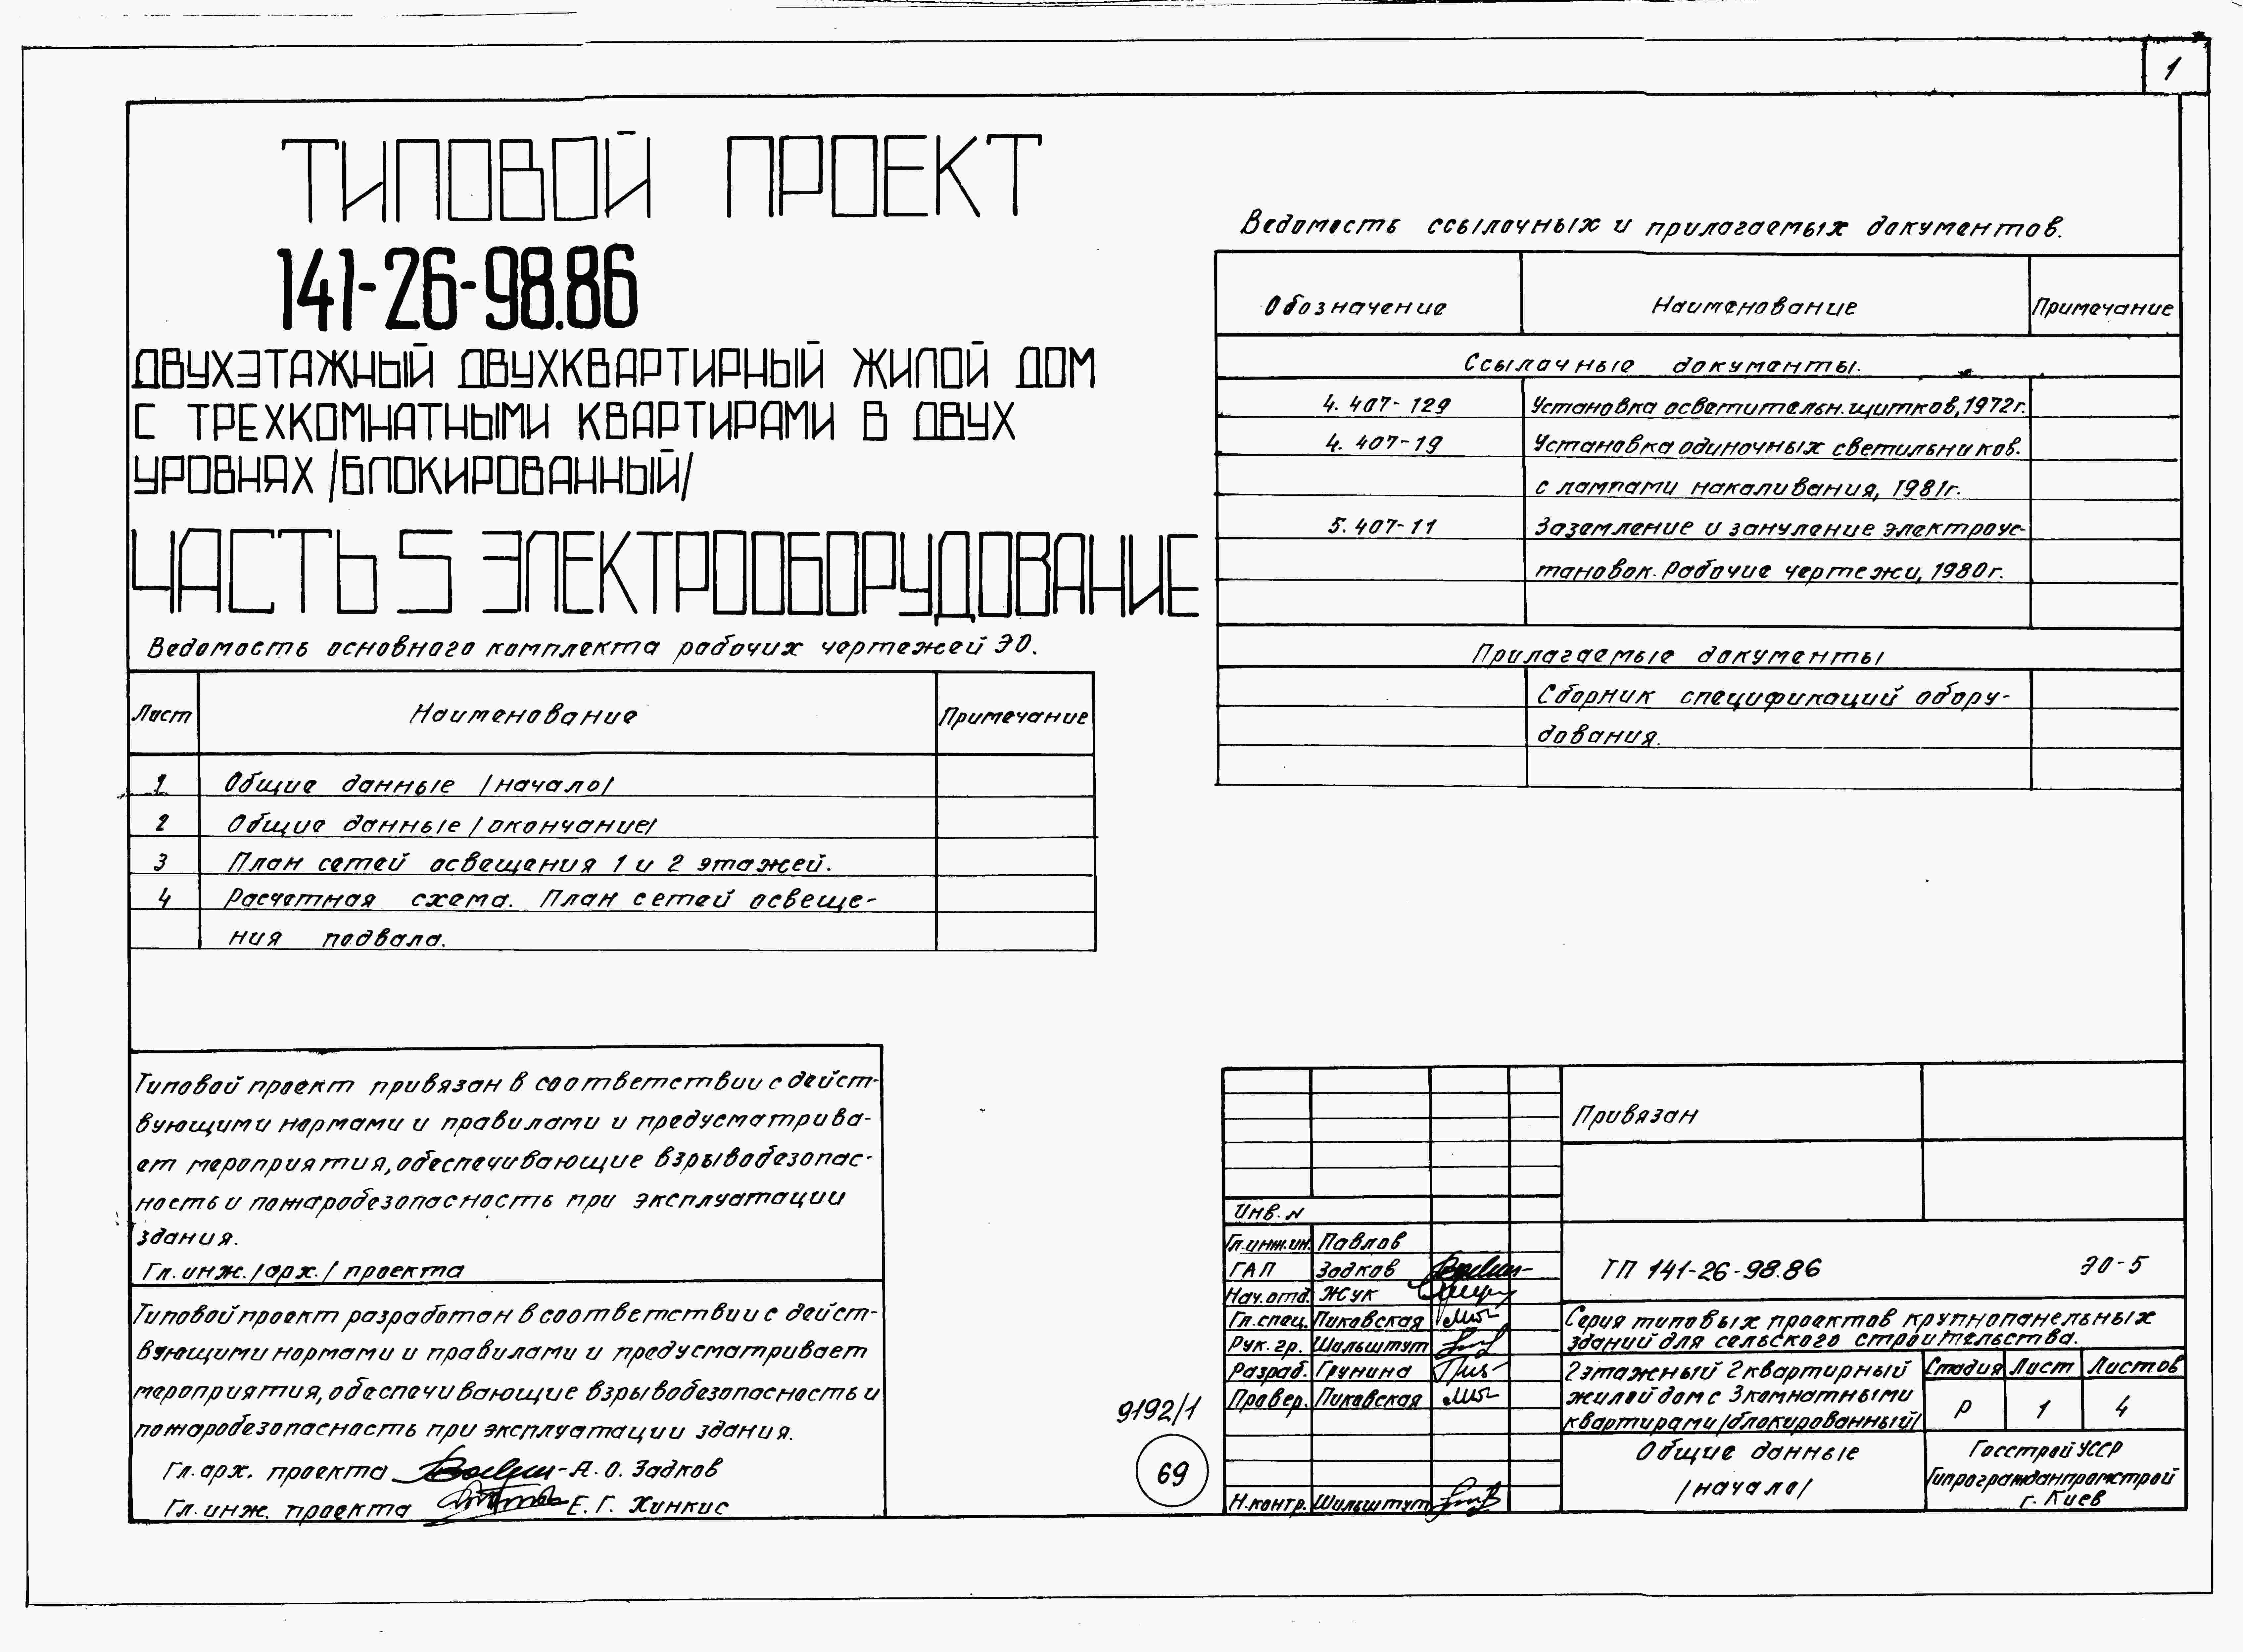 1
ТИПОВОЙ ПРОЕКТ
141-26-98.86
ДВУХЭТАЖНЫЙ ДВУХКВАРТИРНЫЙ ЖИЛОЙ ДОМ
С ТРЕХКОМНАТНЫМИ КВАРТИРАМИ В ДВУХ
УРОВНЯХ /БЛОКИРОВАННЫЙ/
ЧАСТЬ 5 ЭЛЕКТРООБОРУДОВАНИЕ
Ведомость основного комплекта рабочих чертежей ЭО.
Лист Наименование Примечание
1 Общие данные /начало/
2 Общие данные /окончание/
3 План сетей освещения 1 и 2 этажей.
4 Расчетная схема. План сетей освеще-
ния подвала.
Типовой проект привязан в соответствии с дейст-
вующими нормами и правилами и предусматрива-
ет мероприятия, обеспечивающие взрывобезопас-
ность и пожаробезопасность при эксплуатации
здания.
Гл. инж. /арх./ проекта
Типовой проект разработан в соответствии с дейст-
вующими нормами и правилами и предусматривает
мероприятия, обеспечивающие взрывобезопасность и
пожаробезопасность при эксплуатации здания.
Гл. арх. проекта А. О. Задков
Гл. инж. проекта Е. Г. Хинкис
Ведомость ссылочных и прилагаемых документов.
Обозначение Наименование Примечание
Ссылочные документы.
4. 407-129 Установка осветительн. щитков, 1972г.
4. 407-19 Установка одиночных светильников.
с лампами накаливания, 1981г.
5. 407-11 Заземление и зануление электроус-
тановок. Рабочие чертежи, 1980г.
Прилагаемые документы
Сборник спецификаций обору-
дования.
9192/1
69
Привязан
Инв. N
Гл.инж.ин. Павлов
ГАП Задков
Нач.отд. Жук
Гл.спец. Пиковская
Рук. гр. Шильштут
Разраб. Грунина
Провер. Пиковская
Н.контр. Шильштут
ТП 141-26-98.86 ЭО-5
Серия типовых проектов крупнопанельных
зданий для сельского строительства.
2 этажный 2 квартирный
жилой дом с 3 комнатными
квартирами /блокированный/
Стадия Лист Листов
Р 1 4
Общие данные
/начало/
Госстрой УССР
Гипрограждантромстрой
г. Киев